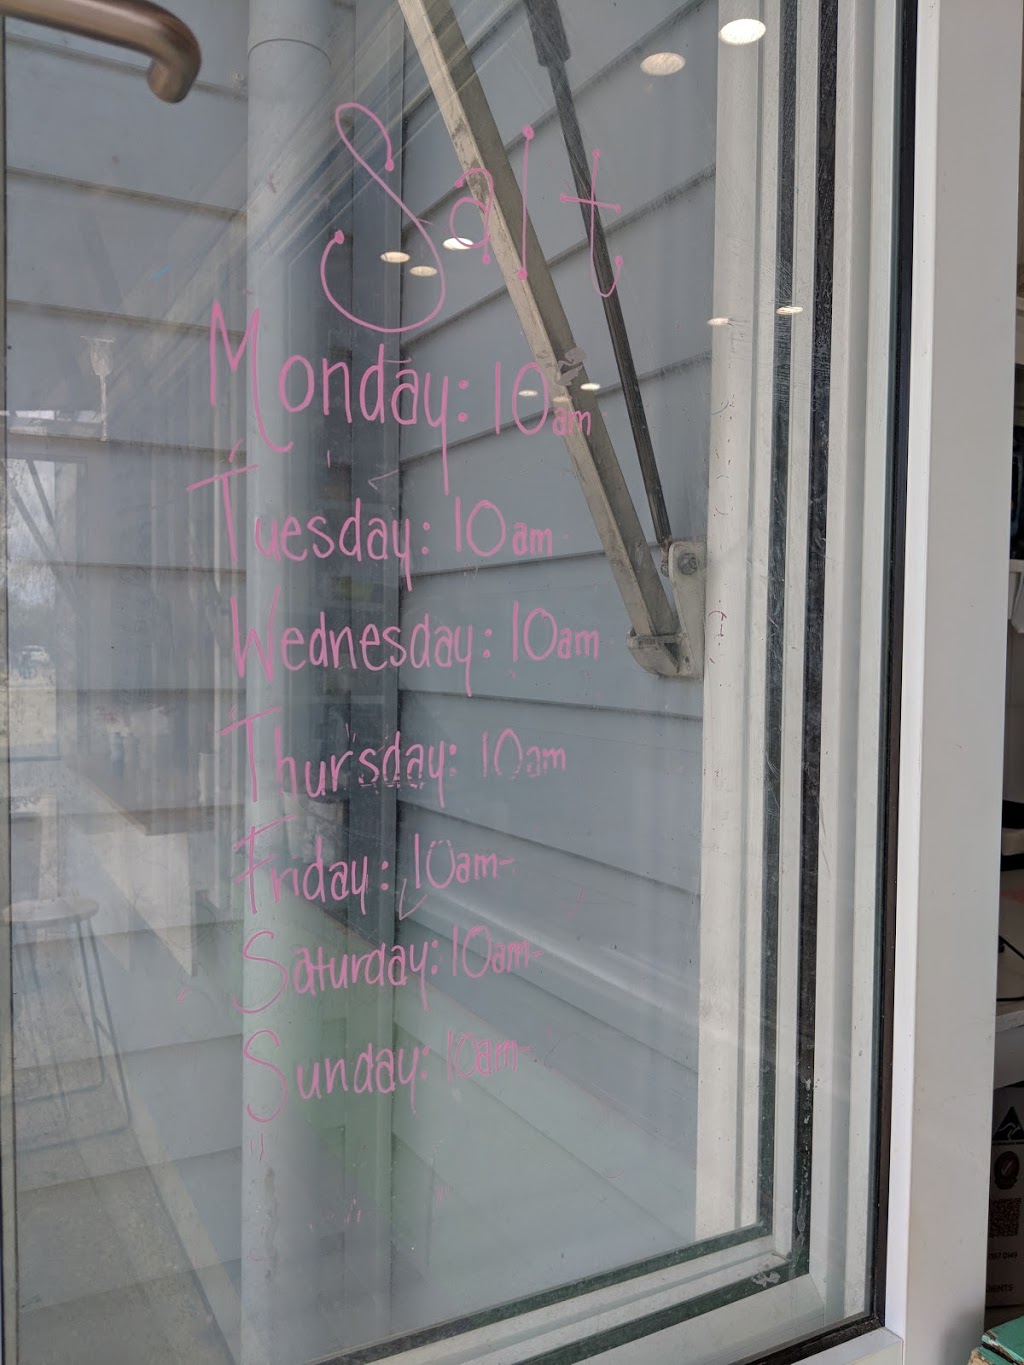 Salt
Monday: 10am
Tuesday: 10am-
Wednesday: 10am
Thursday: 10am
Friday: 10am-
Saturday: 10am-
Sunday: 10am-